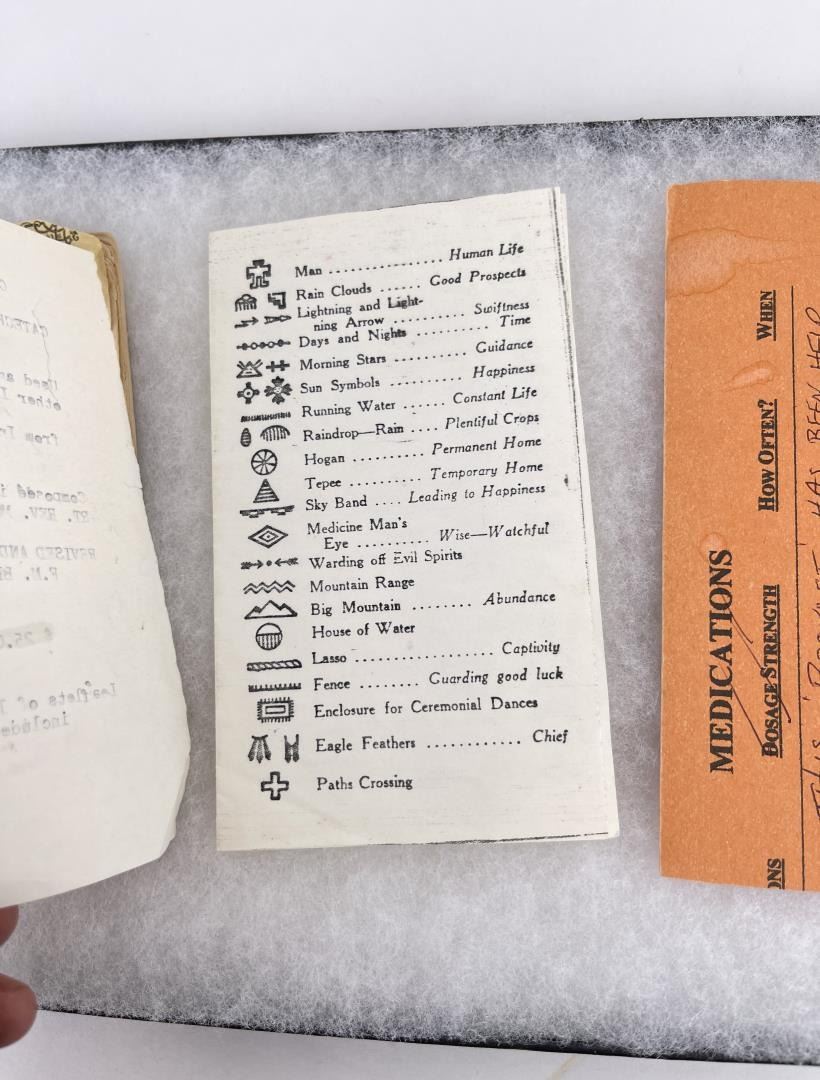 Man .................. Human Life
Rain Clouds ...... Good Prospects
Lightning and Light-
ning Arrow .......... Swiftness
Days and Nights ........... Time
Morning Stars .......... Guidance
Sun Symbols .......... Happiness
Running Water ...... Constant Life
Raindrop—Rain .... Plentiful Crops
Hogan .......... Permanent Home
Tepee .......... Temporary Home
Sky Band .... Leading to Happiness
Medicine Man's
Eye .......... Wise—Watchful
Warding off Evil Spirits
Mountain Range
Big Mountain ........ Abundance
House of Water
Lasso .................. Captivity
Fence ........ Guarding good luck
Enclosure for Ceremonial Dances
Eagle Feathers ............ Chief
Paths Crossing
MEDICATIONS
DOSAGE STRENGTH HOW OFTEN? WHEN
HAS BEEN